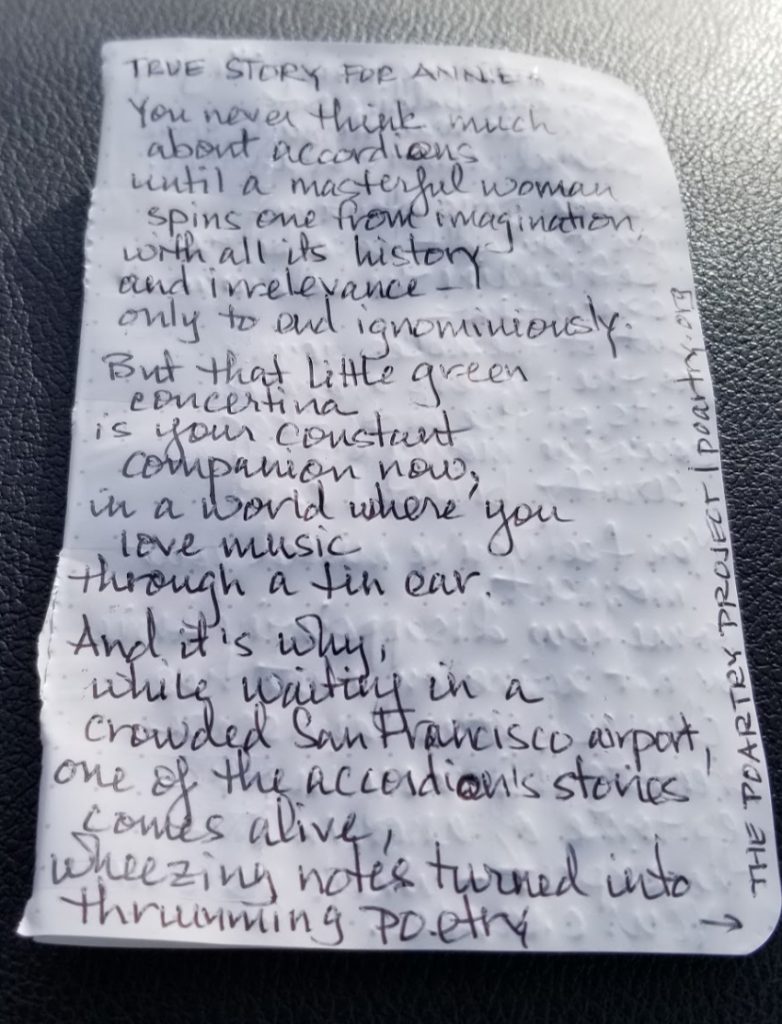 TRUE STORY FOR ANNIE
You never think much
about accordions
until a masterful woman
spins one from imagination,
with all its history
and irrelevance –
only to end ignominiously.
But that little green
concertina
is your constant
companion now,
in a world where you
love music
through a tin ear.
And it's why,
while waiting in a
crowded San Francisco airport,
one of the accordion's stories
comes alive,
wheezing notes turned into
thrumming poetry →
THE POARTRY PROJECT | poartry.org